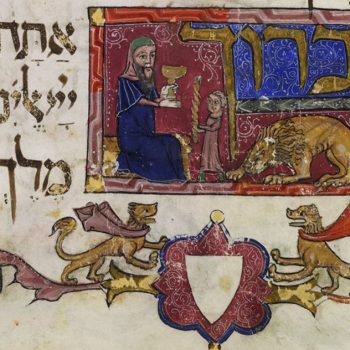 ברוך
אַתָּה
יְיָ
מֶלֶךְ